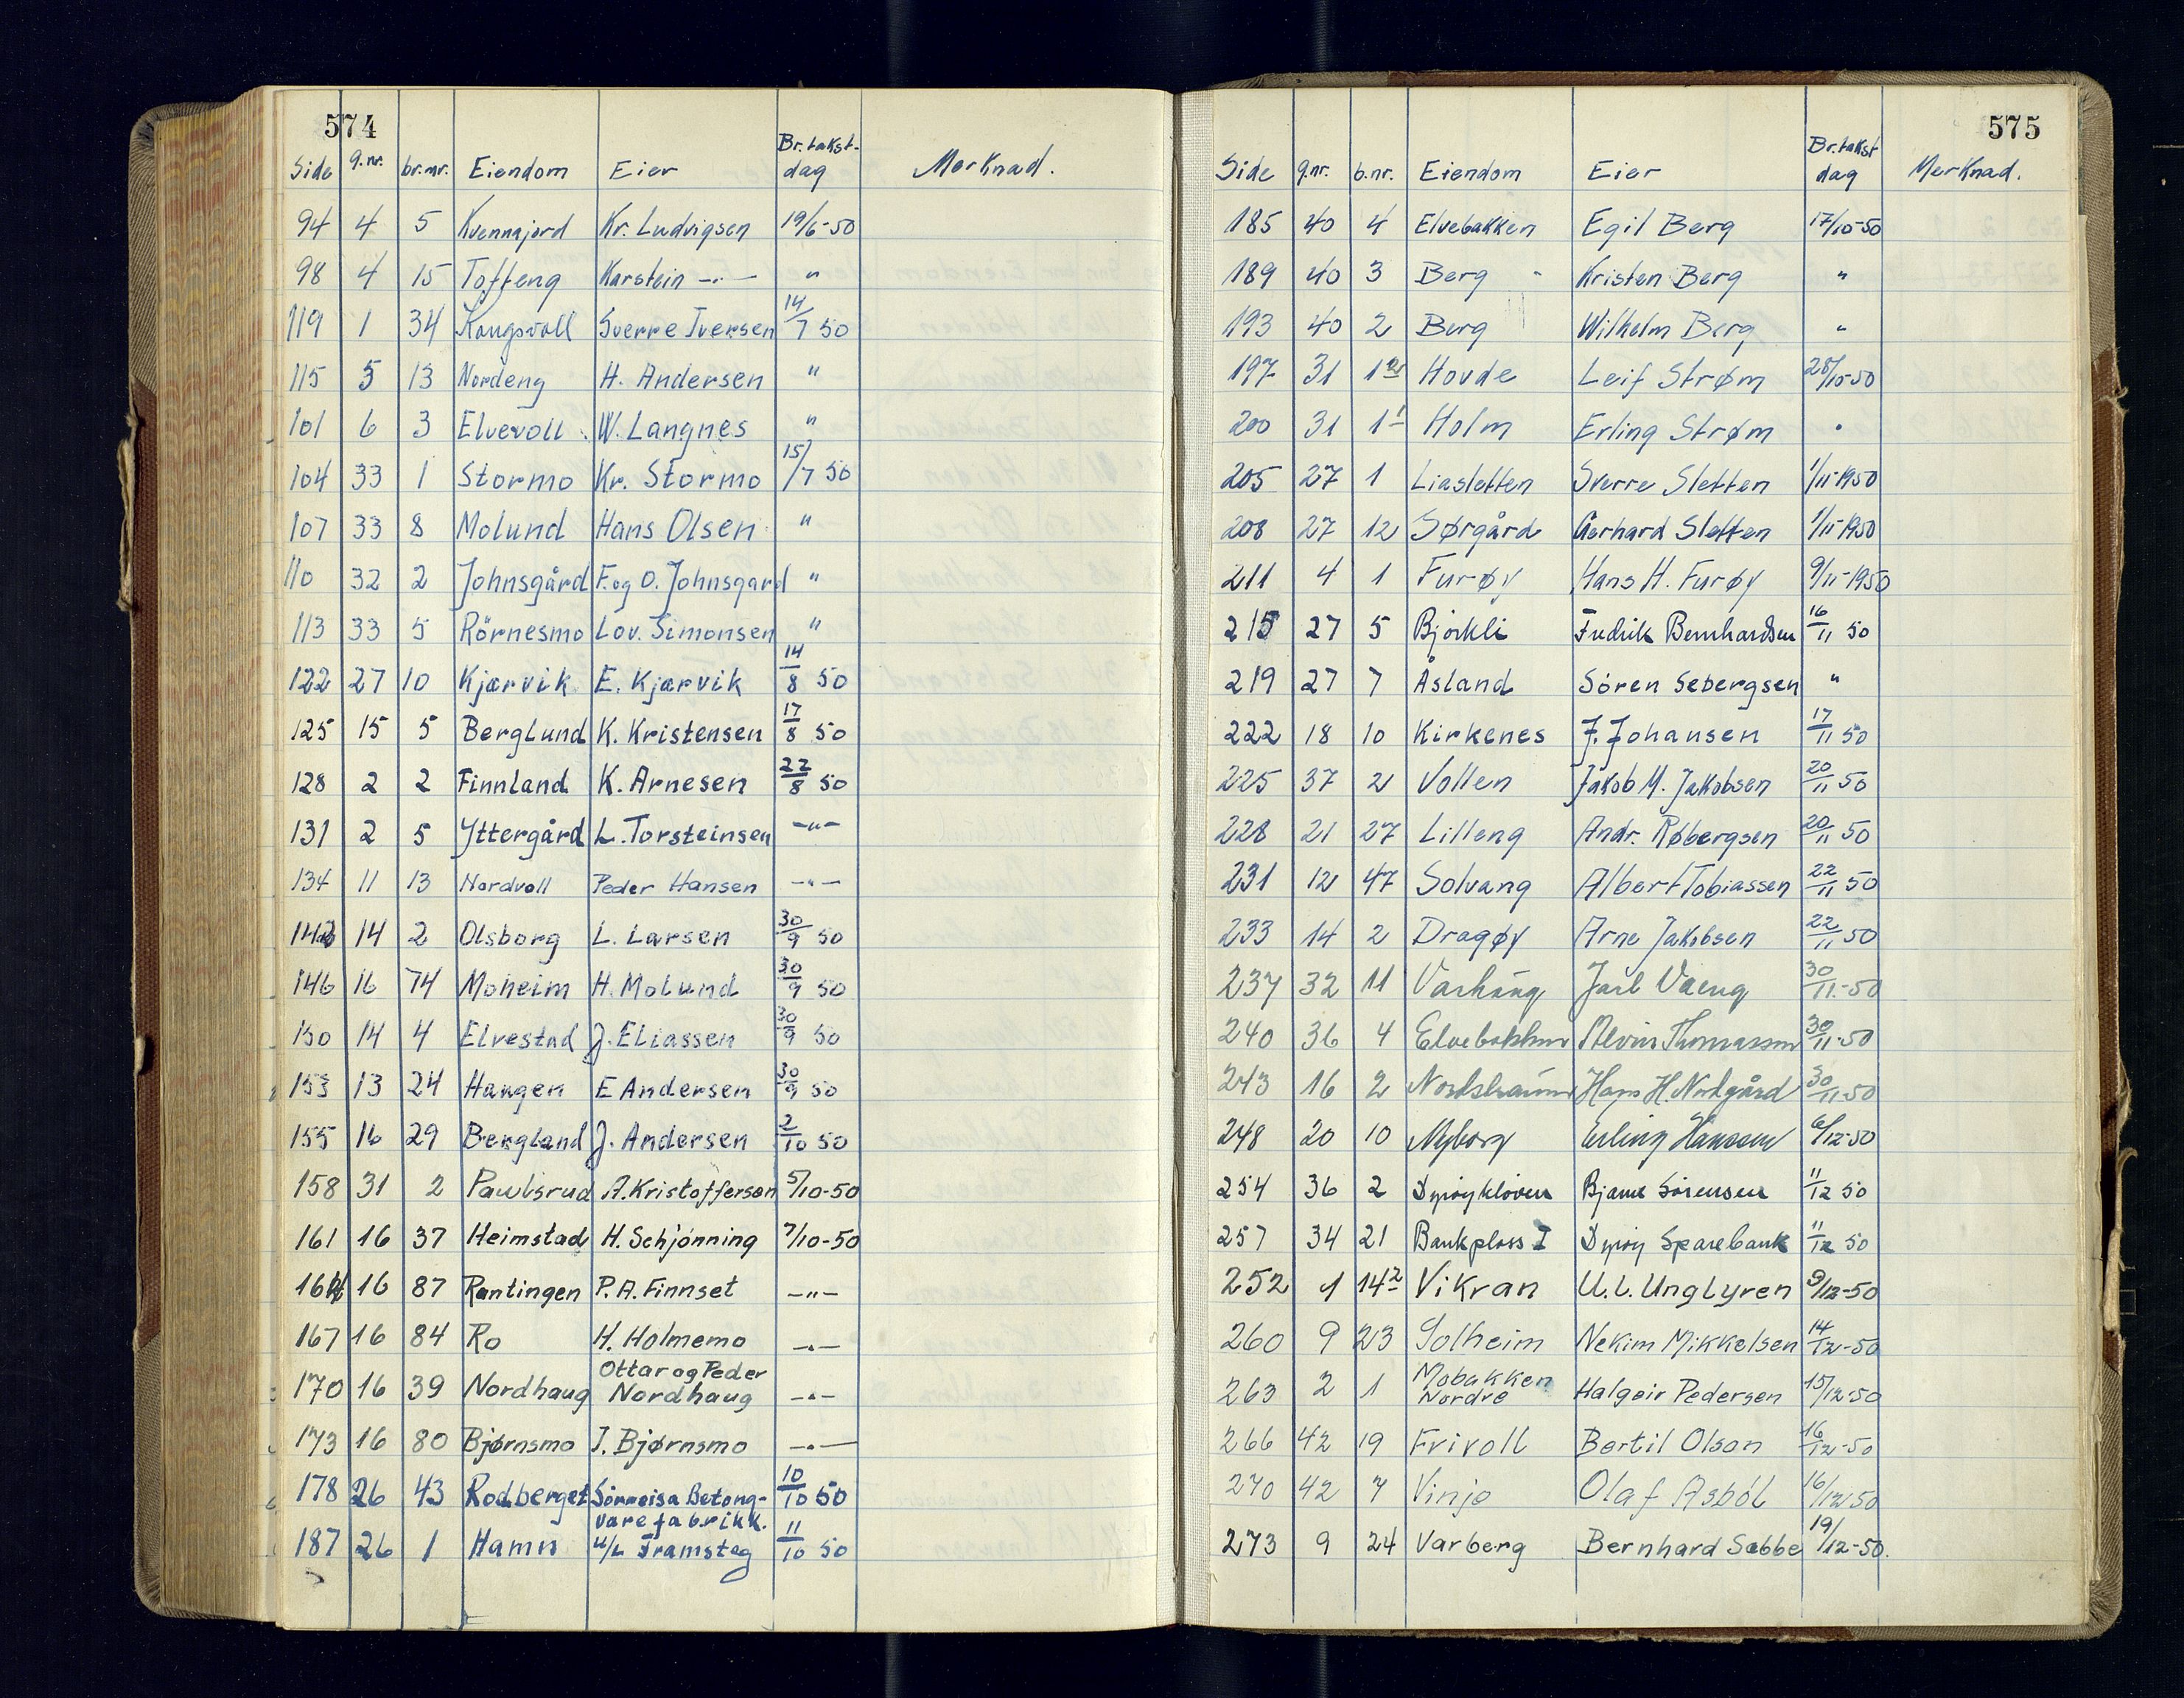 574
Side g.nr. br.nr. Eiendom Eier Br.takst-dag Merknad.
94 4 5 Kvennajord Kr. Ludvigsen 19/6-50
98 4 15 Tofteng Karstein -..- "
119 1 34 Kongsvoll Sverre Iversen 14/7 50
115 5 13 Nordeng H. Andersen "
101 6 3 Elvevoll W. Langnes "
104 33 1 Stormo Kr. Stormo 15/7 50
107 33 8 Molund Hans Olsen "
110 32 2 Johnsgård F. og O. Johnsgard "
113 33 5 Rörnesmo Lov. Simonsen "
122 27 10 Kjærvik E. Kjærvik 14/8 50
125 15 5 Berglund K. Kristensen 17/8 50
128 2 2 Finnland K. Arnesen 22/8 50
131 2 5 Yttergård L. Torsteinsen -"-
134 11 13 Nordvoll Peder Hansen -"-
14 2 Olsborg L. Larsen 30/9 50
146 16 74 Moheim H. Molund 30/9 50
150 14 4 Elvestad J. Eliassen 30/9 50
153 13 24 Haugen E Andersen 30/9 50
155 16 29 Bergland J. Andersen 2/10 50
158 31 2 Paulsrud A. Kristoffersen 5/10-50
161 16 37 Heimstad H. Schjönning 7/10-50
164 16 87 Rantingen P. A. Finnset -"-
167 16 84 Ro H. Holmemo -"-
170 16 39 Nordhaug Ottar og Peder Nordhaug -"-
173 16 80 Bjørnsmo I. Bjørnsmo -"-
178 26 43 Rodberget Sörreisa Betong-varefabrikk. 10/10 50
187 26 1 Hamn u/L Framsteg 11/10 50
575
Side g.nr. b.nr. Eiendom Eier Br.takst dag Merknad.
185 40 4 Elvebakken Egil Berg 17/10-50
189 40 3 Berg Kristen Berg "
193 40 2 Berg Wilhelm Berg "
197 31 Hovde Leif Strøm 28/10-50
200 31 1 1 Holm Erling Strøm "
205 27 1 Liasletten Sverre Sletten 1/11-1950
208 27 12 Sørgård Gerhard Sletten 1/11-1950
211 4 1 Furøy Hans H. Furøy 9/11-1950
215 27 5 Björkli Fredrik Bernhardsen 16/11 50
219 27 7 Åsland Sören Sebergsen "
222 18 10 Kirkenes J. Johansen 17/11 50
225 37 2 Vollen Jakob M. Jakobsen 20/11 50
228 21 27 Lilleng Andr. Røbergsen 20/11 50
231 12 47 Solvang Albert Tobiassen 22/11 50
233 14 2 Dragøy Arne Jakobsen 22/11 50
237 32 11 Varhaug Jarl Vaeng 30/11-50
240 36 4 Elvebakken Alvin Thomassen 30/11-50
243 16 2 Nordstraum Hans H. Nordgård 30/11-50
248 20 10 Nyborg Erling Hanssen 6/12-50
254 36 2 Dyröykloven Bjarne Sörensen 11/12 50
257 34 21 Bankplass I Dyröy Sparebank 11/12 50
252 1 14 2 Vikran U. L. Unglyren 9/12-50
260 9 23 Solheim Nekim Mikkelsen 14/12-50
263 2 1 Mobakken Nordre Halgeir Pedersen 15/12-50
266 42 19 Frivoll Bertil Olsen 16/12-50
270 42 7 Vinje Olaf Asböl 16/12 50
273 9 24 Varberg Bernhard Sebbe 19/12-50.